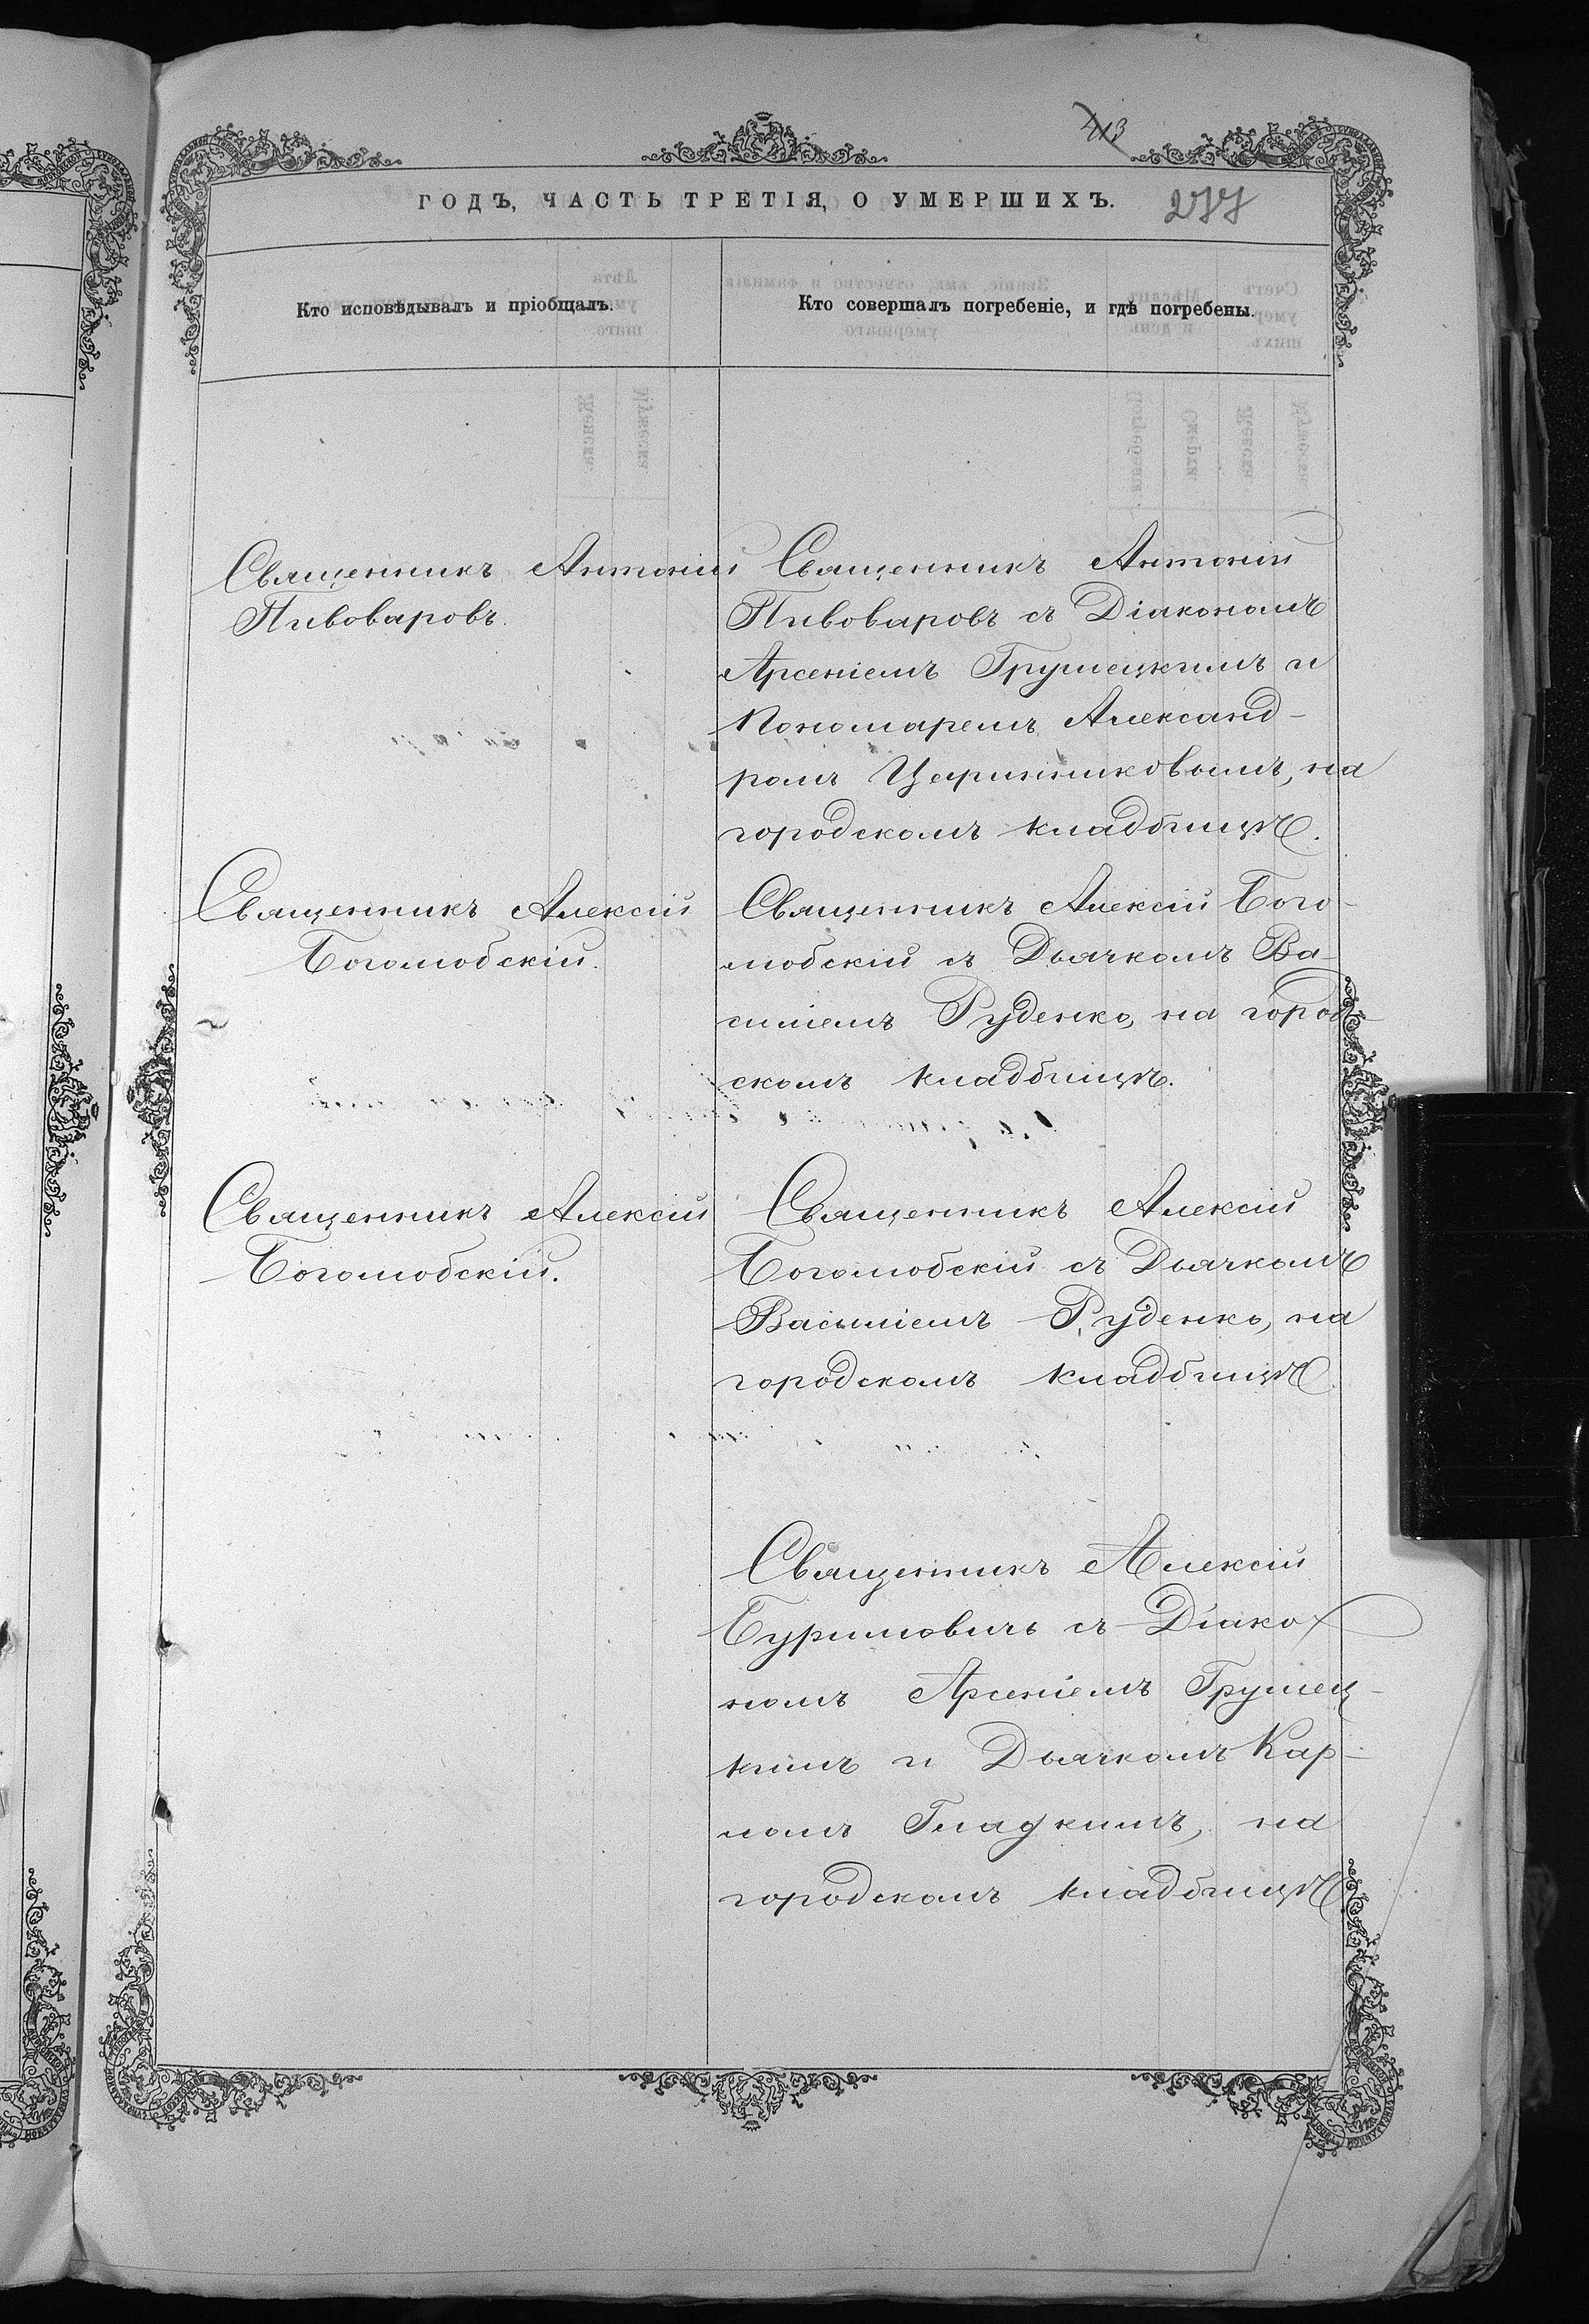 413
ГОДЪ, ЧАСТЬ ТРЕТІЯ, О УМЕРШИХЪ.
277
Кто исповѣдывалъ и пріобщалъ.
Кто совершалъ погребеніе, и гдѣ погребены.
Священникъ Антоній
Пивоваровъ.
Священникъ Антоній
Пивоваровъ съ Діакономъ
Арсеніемъ Грушецкимъ и
Пономаремъ Александ-
ромъ Царинниковымъ, на
городскомъ кладбищѣ.
Священникъ Алексій
Боголюбскій.
Священникъ Алексій Бого-
любскій съ Дьячкомъ Ва-
силіемъ Руденко, на город-
скомъ кладбищѣ.
Священникъ Алексій
Боголюбскій.
Священникъ Алексій
Боголюбскій съ Дьячкомъ
Василіемъ Руденко, на
городскомъ кладбищѣ
Священникъ Алексій
Буримовичъ съ Діако-
номъ Арсеніемъ Грушец-
кимъ и Дьячкомъ Кар-
помъ Гладкимъ, на
городскомъ кладбищѣ